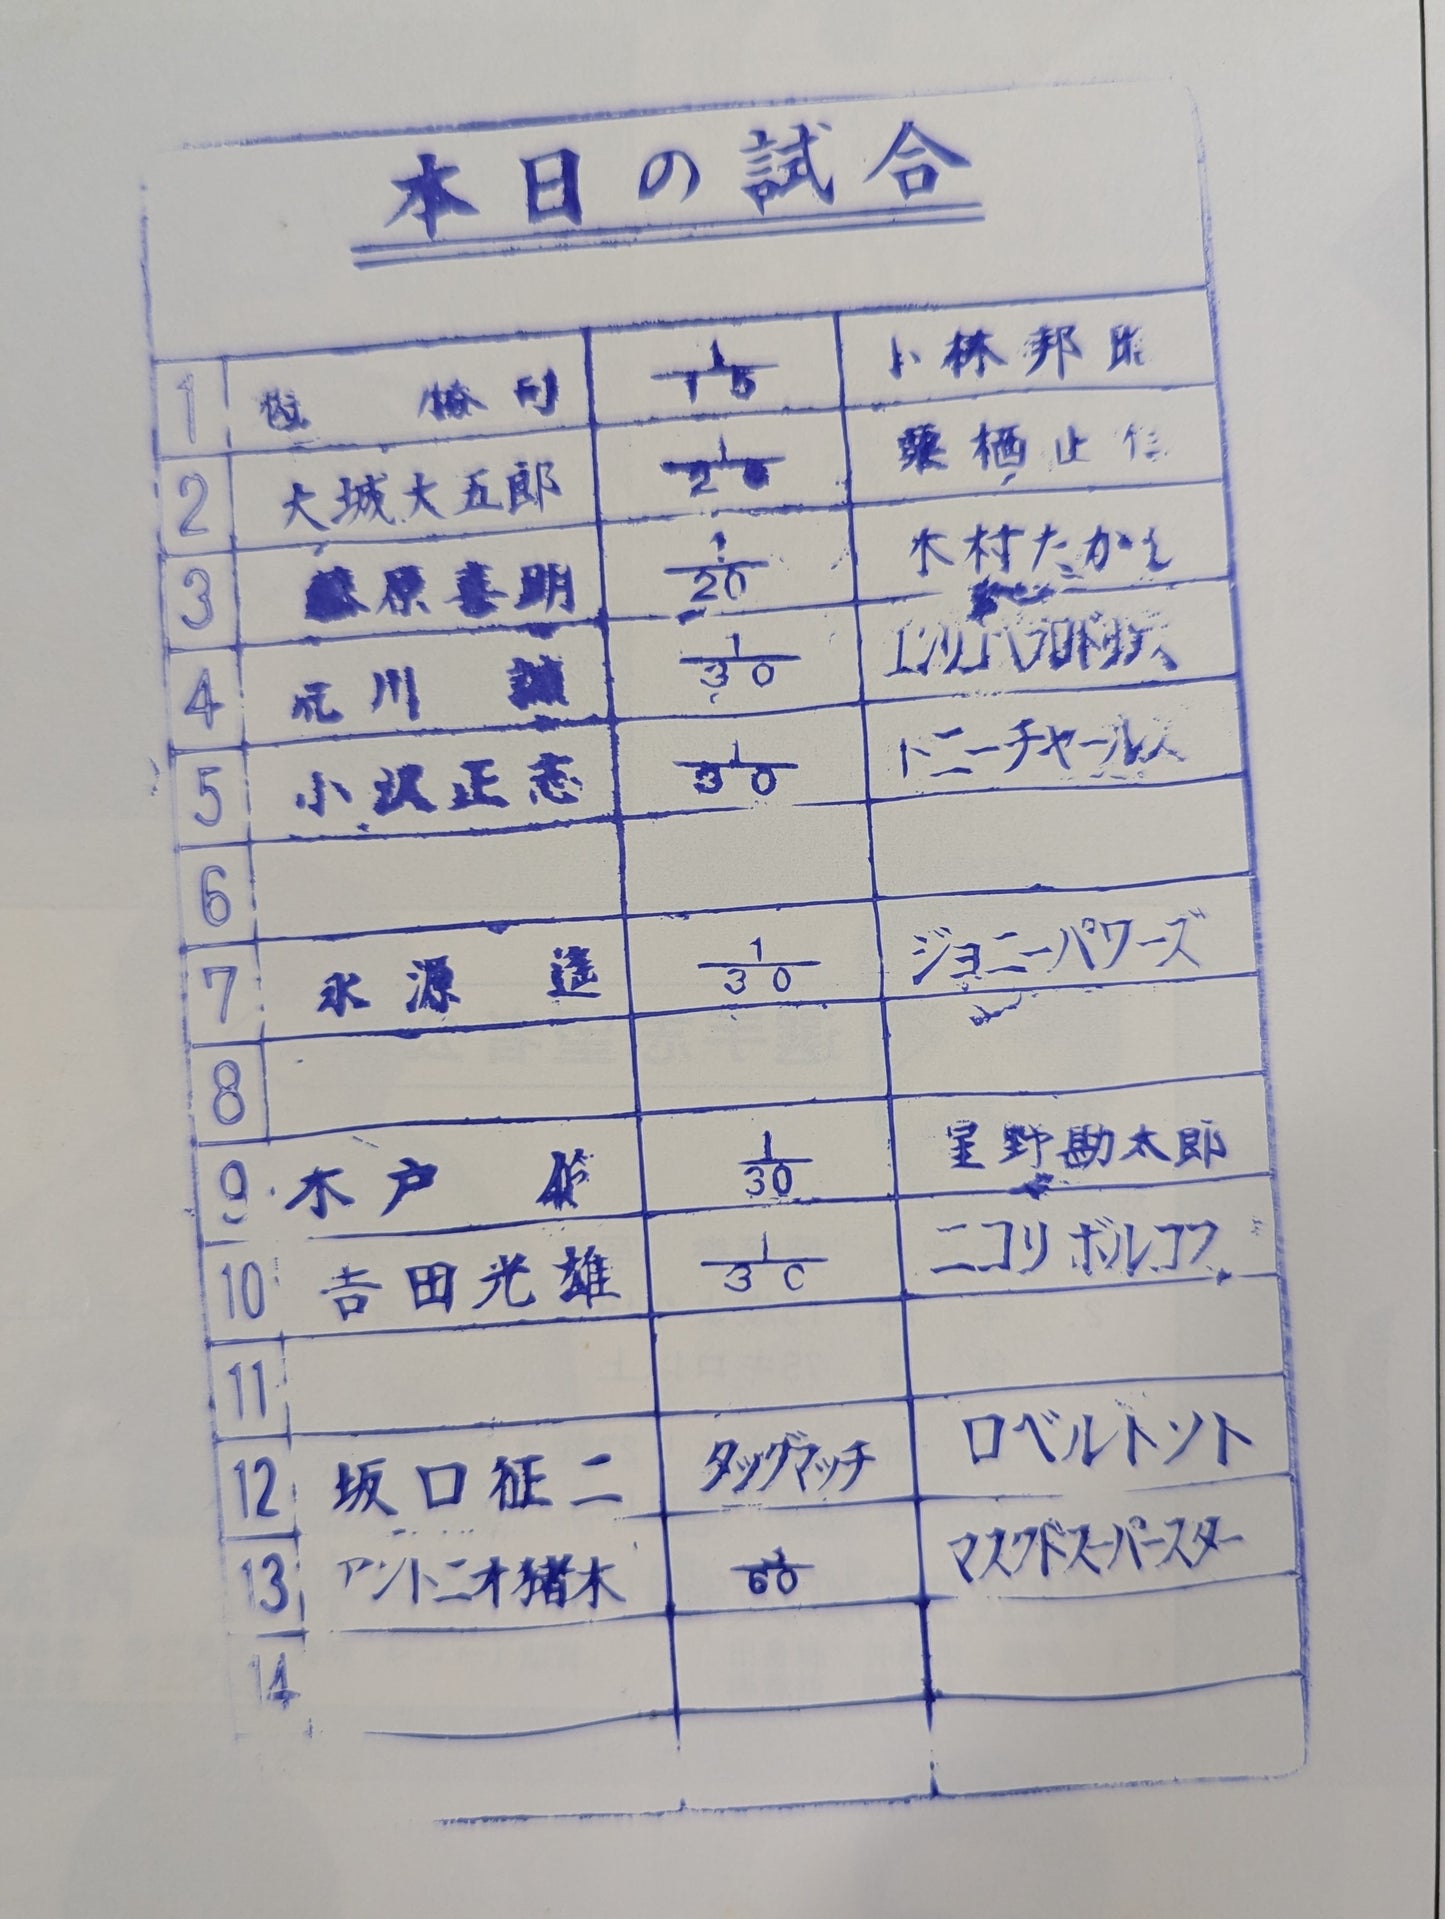 本日の試合
1 1/15 小林邦昭
2 大城大五郎 1/20 栗栖正伸
3 藤原喜明 1/20 木村たかし
4 荒川 誠 1/30
5 小沢正志 1/30 トニーチャールス
6
7 永源 遙 1/30 ジョニーパワーズ
8
9 木戸 修 1/30 星野勘太郎
10 吉田光雄 1/30 ニコリボルコフ
11
12 坂口征二 タッグマッチ ロベルトソト
13 アントニオ猪木 1/60 マスクドスーパースター
14